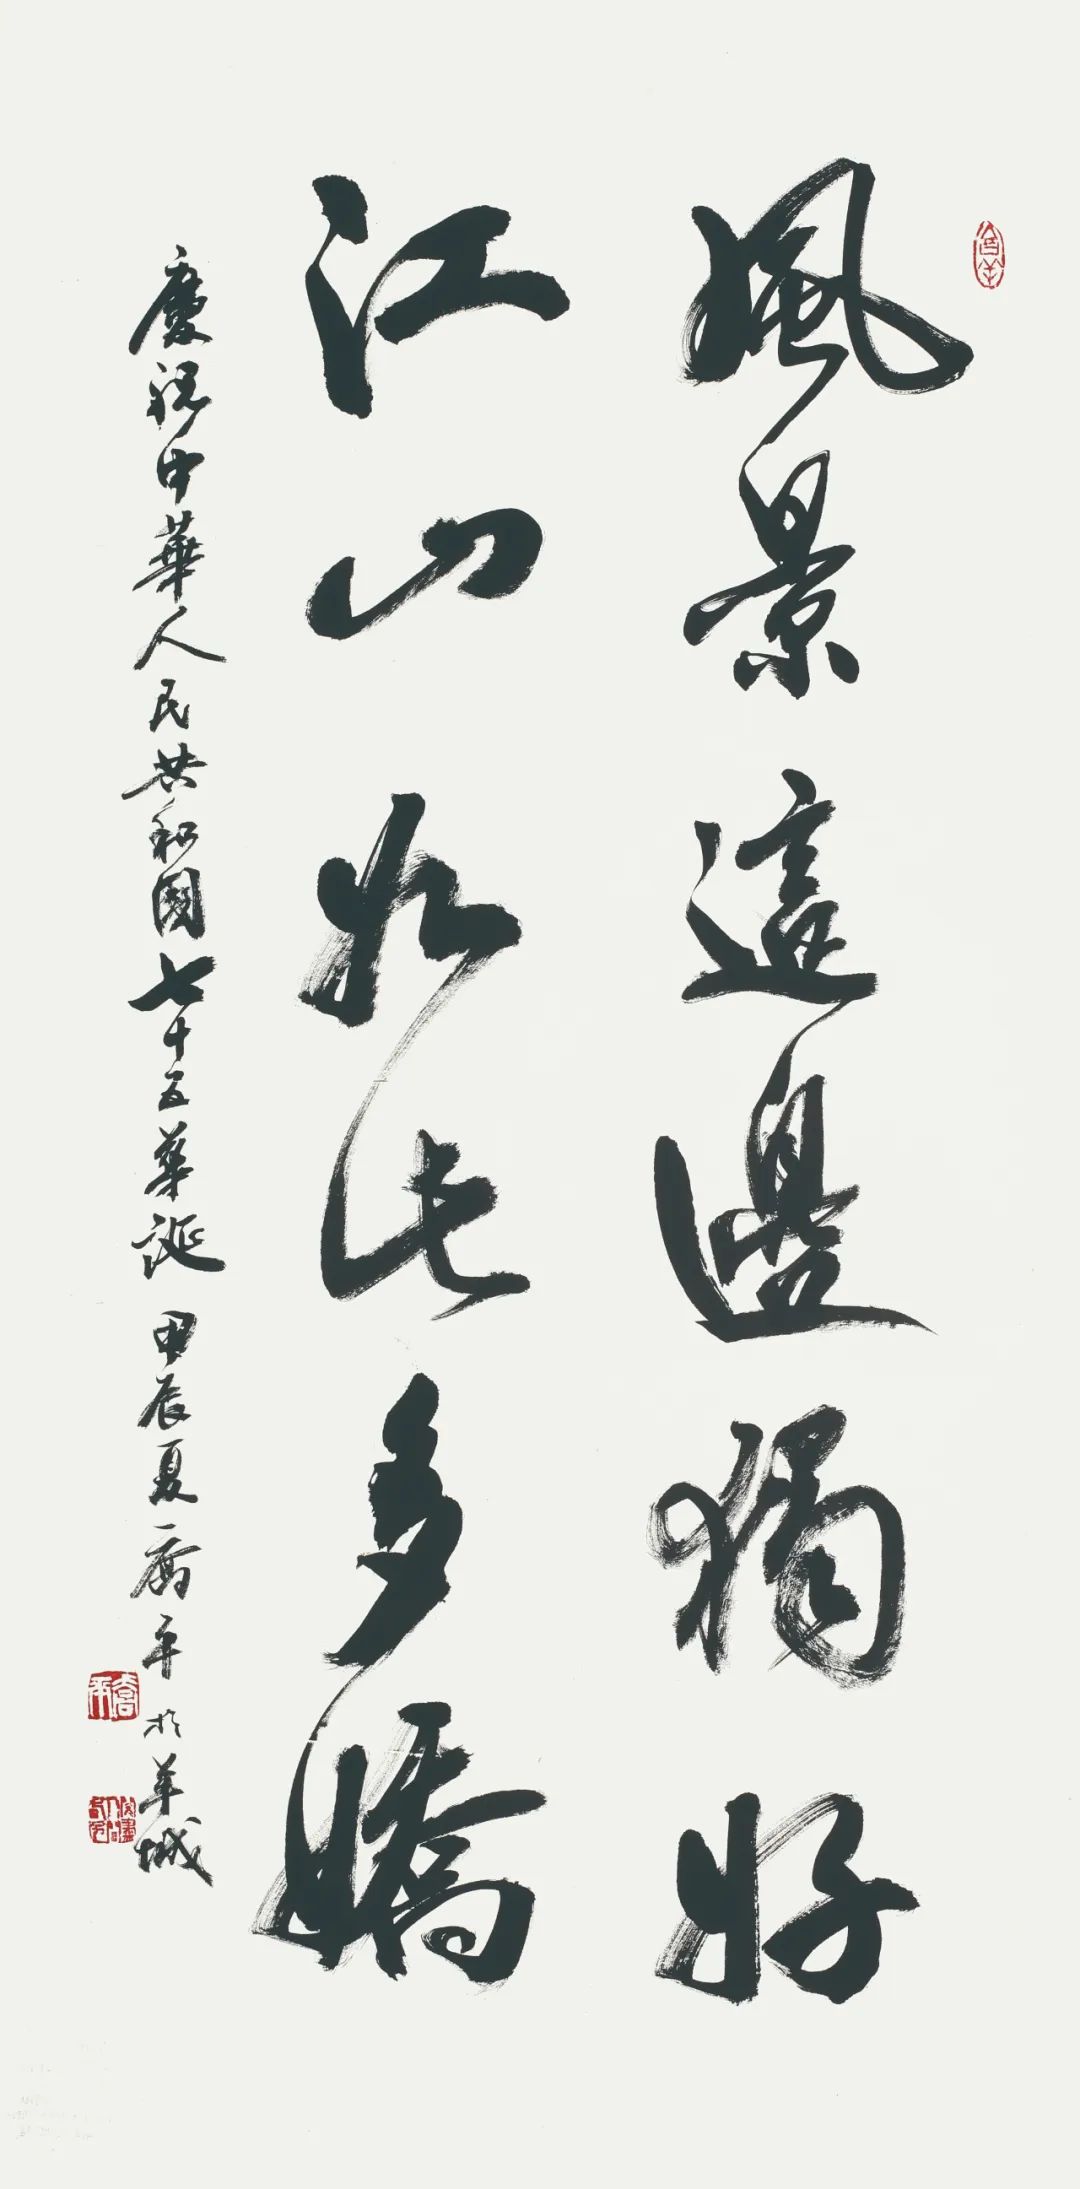 風景這邊獨好
江山如此多嬌
慶祝中華人民共和國七十五華誕 甲辰夏喬平於羊城